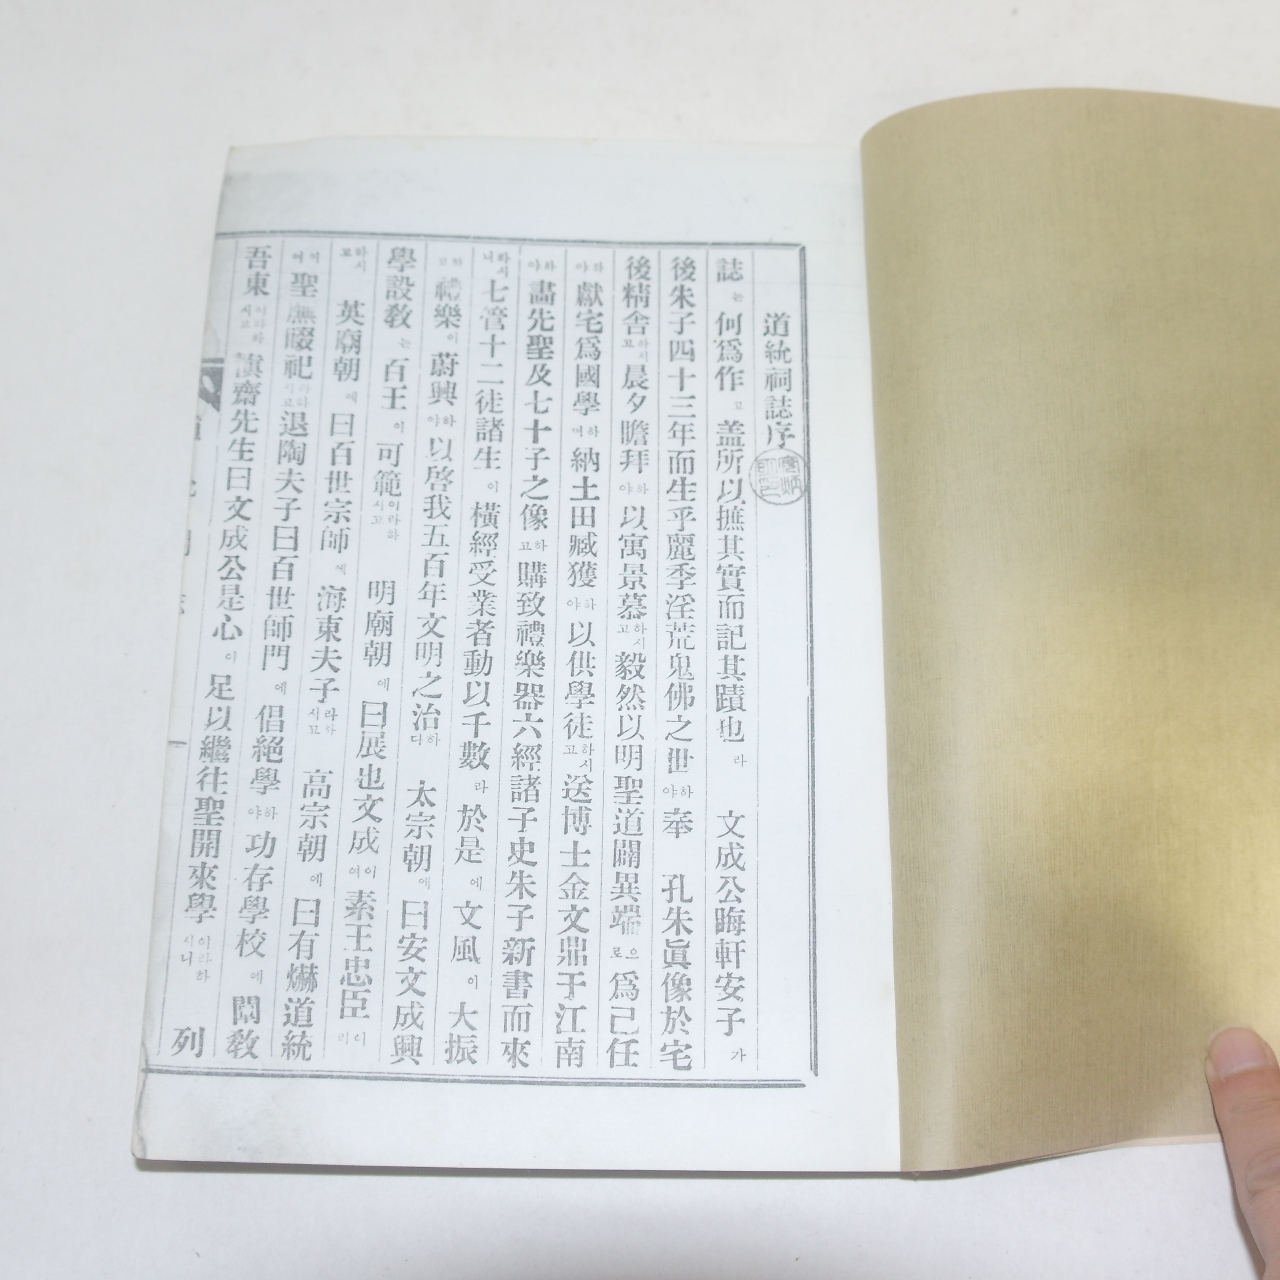 道統祠誌序
誌는 何爲作고 盖所以摭其實而記其蹟也라 文成公晦軒安子가
後朱子四十三年而生乎麗季淫荒鬼佛之世하야 奉 孔朱眞像於宅
後精舍하시고 晨夕瞻拜하야 以寓景慕하시고 毅然以明聖道闢異端으로 爲己任
하야 獻宅爲國學하며 納土田臧獲하야 以供學徒하시고 送博士金文鼎于江南
하야 畵先聖及七十子之像하고 購致禮樂器六經諸子史朱子新書而來
하시니 七管十二徒諸生이 橫經受業者動以千數라 於是에 文風이 大振
하고 禮樂이 蔚興하야 以啓我五百年文明之治하다 太宗朝에 曰安文成興
學設敎는 百王이 可範이라하시고 明廟朝에 曰展也文成이여 素王忠臣이리
하시고 英廟朝에 曰百世宗師에 海東夫子라하시고 高宗朝에 曰有爀道統
이 聖廡 祀라하시고 退陶夫子曰百世師門에 倡絕學하야 功存學校에 闡敎
吾東이라하시고 愼齋先生曰文成公是心이 足以繼往聖開來學이라하시니 列